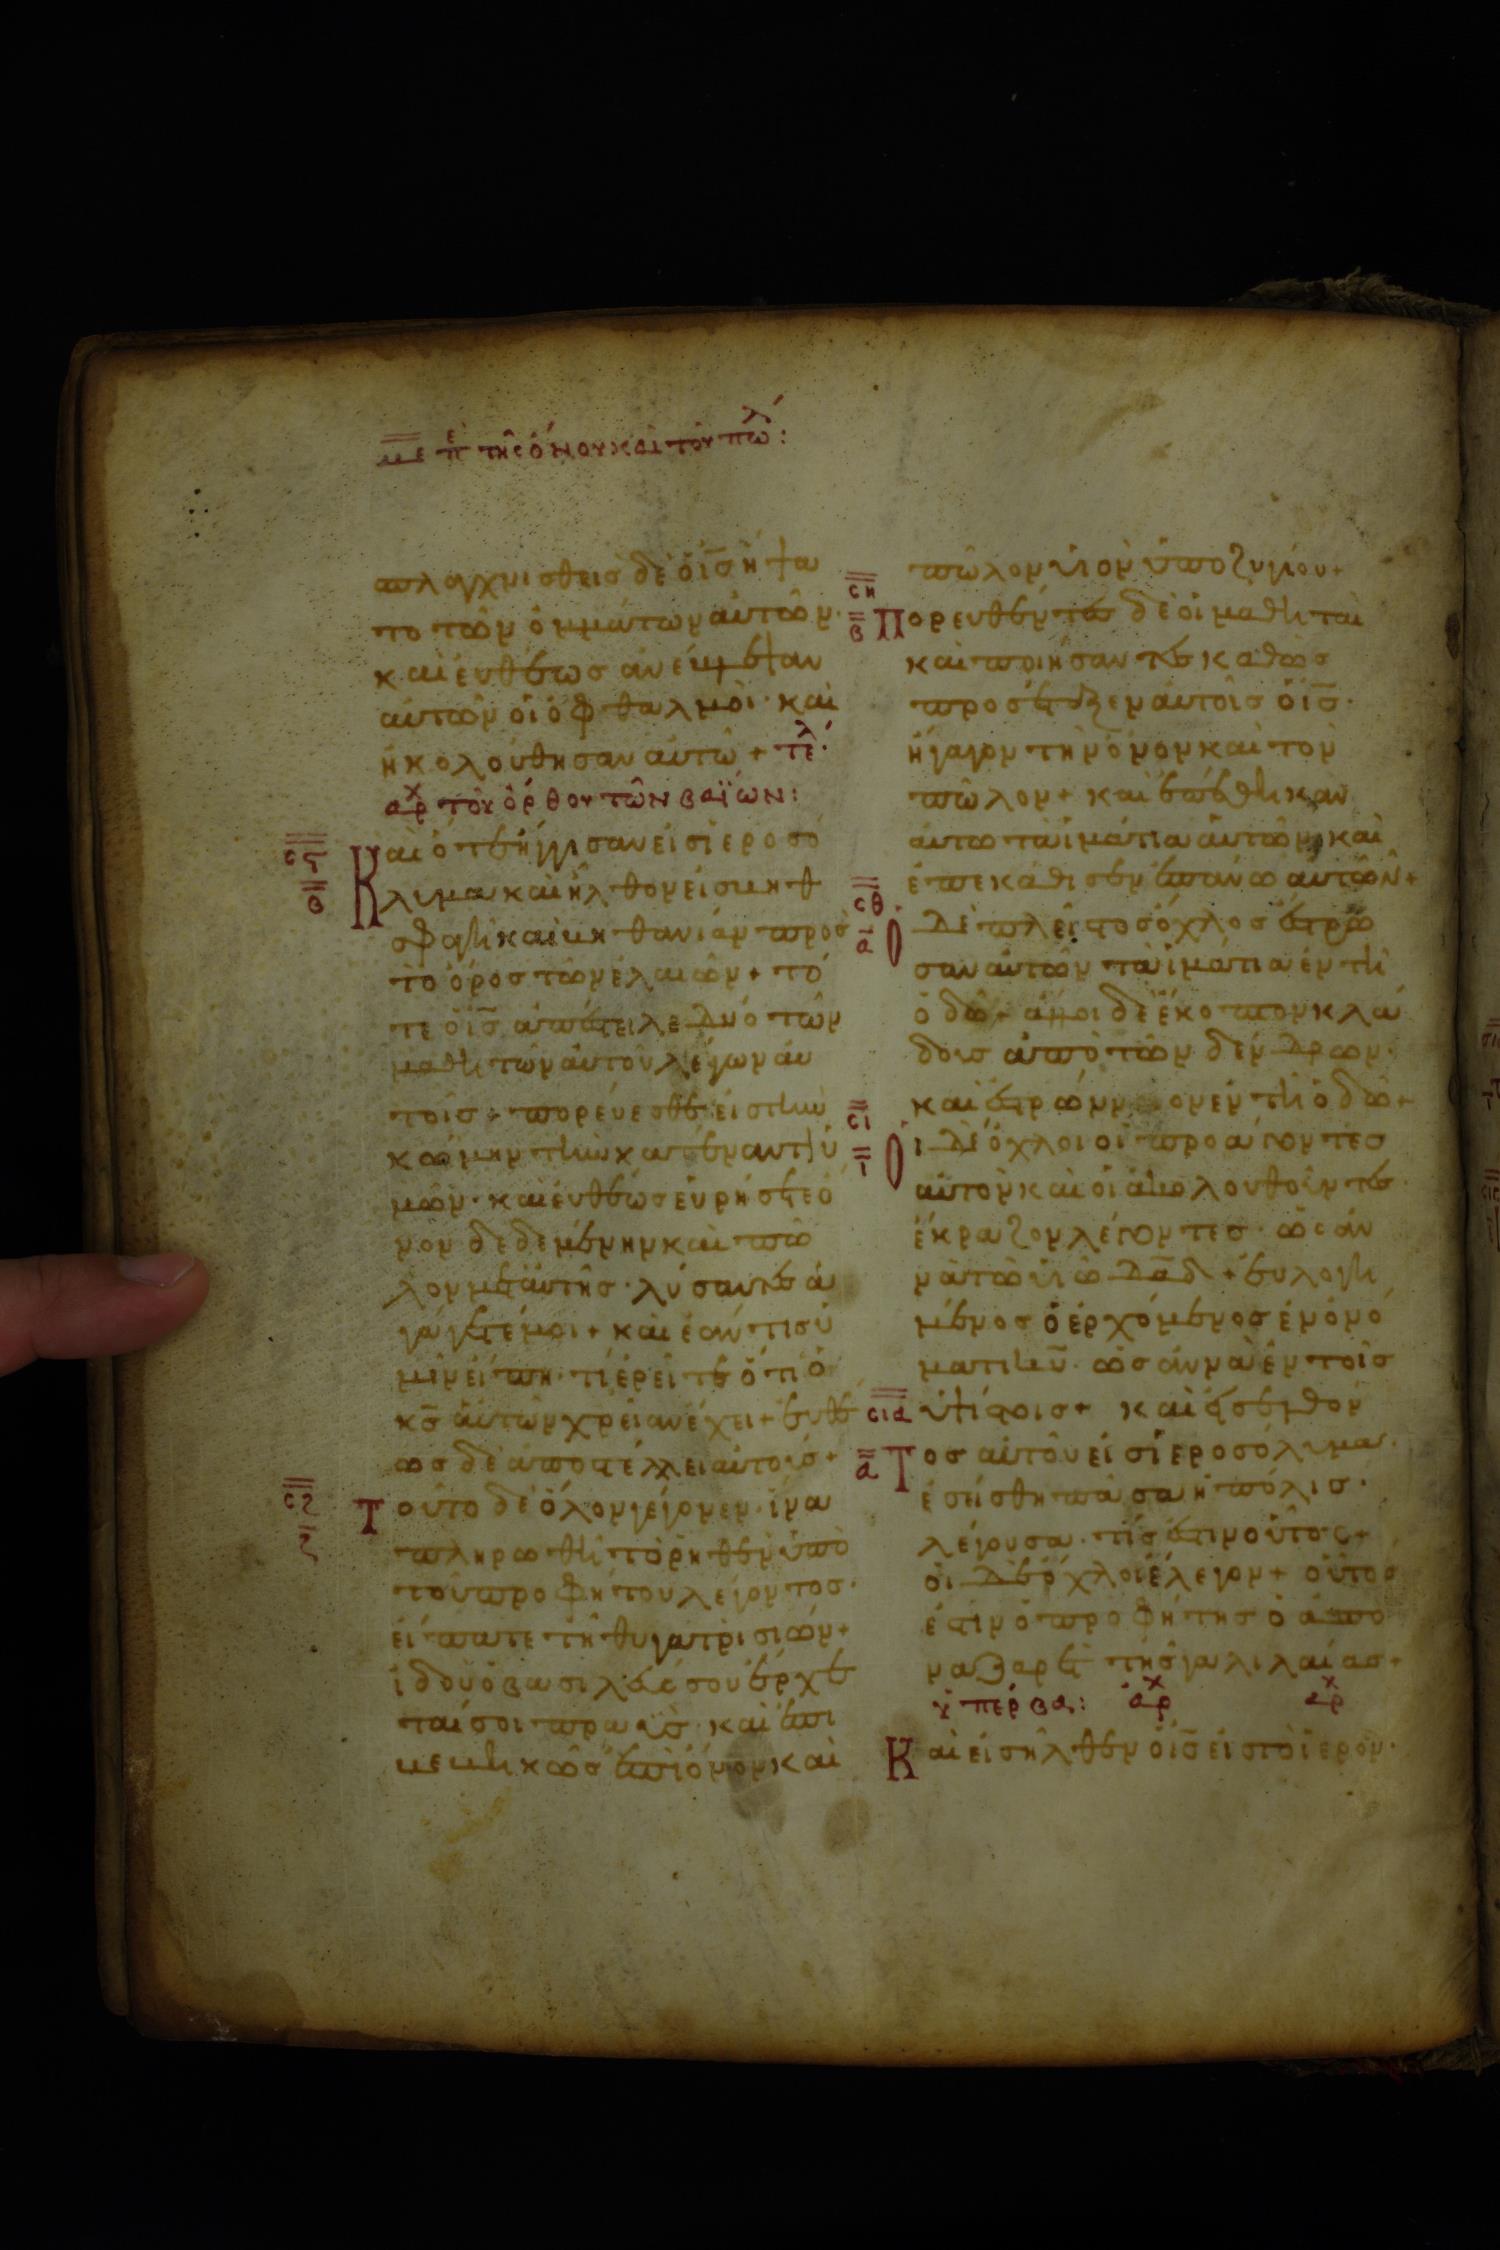 με περὶ τῆς ὄνου καὶ τοῦ πώλ:
σπλαγχνισθεὶς δὲ ὁ ις ἥψα
το τῶν ὀμμάτων αὐτῶν·
καὶ εὐθέως ἀνέβλεψαν
αὐτῶν οἱ ὀφθαλμοί· καὶ
ἠκολούθησαν αὐτῷ + τελ·
ἀρχ τοῦ ὄρθρου τῶν βαΐων:
σϛ
β
Καὶ ὅτε ἤγγισαν εἰς ἱεροσό
λυμα καὶ ἦλθον εἰς βηθ
σφαγὴ καὶ βηθανίαν πρὸς
τὸ ὄρος τῶν ἐλαιῶν + τό
τε ὁ ις ἀπέστειλε δύο τῶν
μαθητῶν αὐτοῦ λέγων αὐ
τοῖς + πορεύεσθε εἰς τὴν
κώμην τὴν κατέναντι ὑ
μῶν· καὶ εὐθέως εὑρήσετε ὄ
νον δεδεμένην καὶ πῶ
λον μετ' αὐτῆς· λύσαντες ἀ
γάγετέ μοι + καὶ ἐάν τις ὑ
μῖν εἴπῃ τί ἐρεῖτε ὅτι ὁ
κς αὐτῶν χρείαν ἔχει + εὐθέ
ως δὲ ἀποστέλλει αὐτούς +
σζ
ζ
Τοῦτο δὲ ὅλον γέγονεν· ἵνα
πληρωθῇ τὸ ῥηθὲν ὑπὸ
τοῦ προφήτου λέγοντος·
εἴπατε τῇ θυγατρὶ σιών +
ἰδοὺ ὁ βασιλεύς σου ἔρχε
ταί σοι πραΰς· καὶ ἐπι
βεβηκὼς ἐπὶ ὄνον καὶ
πῶλον υἱὸν ὑποζυγίου +
ση
β
Πορευθέντες δὲ οἱ μαθηταὶ
καὶ ποιήσαντες καθὼς
προσέταξεν αὐτοῖς ὁ ις·
ἤγαγον τὴν ὄνον καὶ τὸν
πῶλον + καὶ ἐπέθηκαν
αὐτῷ τὰ ἱμάτια αὐτῶν καὶ
ἐπεκάθισεν ἐπάνω αὐτῶν +
σθ
α
Ὁ δὲ πλεῖστος ὄχλος ἔστρω
σαν αὐτῶν τὰ ἱμάτια ἐν τῇ
ὁδῷ + ἄλλοι δὲ ἔκοπτον κλά
δους ἀπὸ τῶν δένδρων·
καὶ ἐστρώννυον ἐν τῇ ὁδῷ +
σι
ι
Οἱ δὲ ὄχλοι οἱ προάγοντες
αὐτὸν καὶ οἱ ἀκολουθοῦντες·
ἔκραζον λέγοντες· ὡσαν
νὰ τῷ υἱῷ δαδ + εὐλογη
μένος ὁ ἐρχόμενος ἐν ὀνό
ματι κυ· ὡσαννὰ ἐν τοῖς
ὑψίστοις + καὶ εἰσελθόν
σια
α
Τος αὐτοῦ εἰς ἱεροσόλυμα·
ἐσείσθη πᾶσα ἡ πόλις·
λέγουσα· τίς ἐστιν οὗτος +
οἱ δὲ ὄχλοι ἔλεγον + οὗτός
ἐστιν ὁ προφήτης ὁ ἀπὸ
ναζαρὲτ τῆς γαλιλαίας +
ὑπέρβα: ἀρχ ἀρχ
Καὶ εἰσῆλθεν ὁ ις εἰς τὸ ἱερόν·